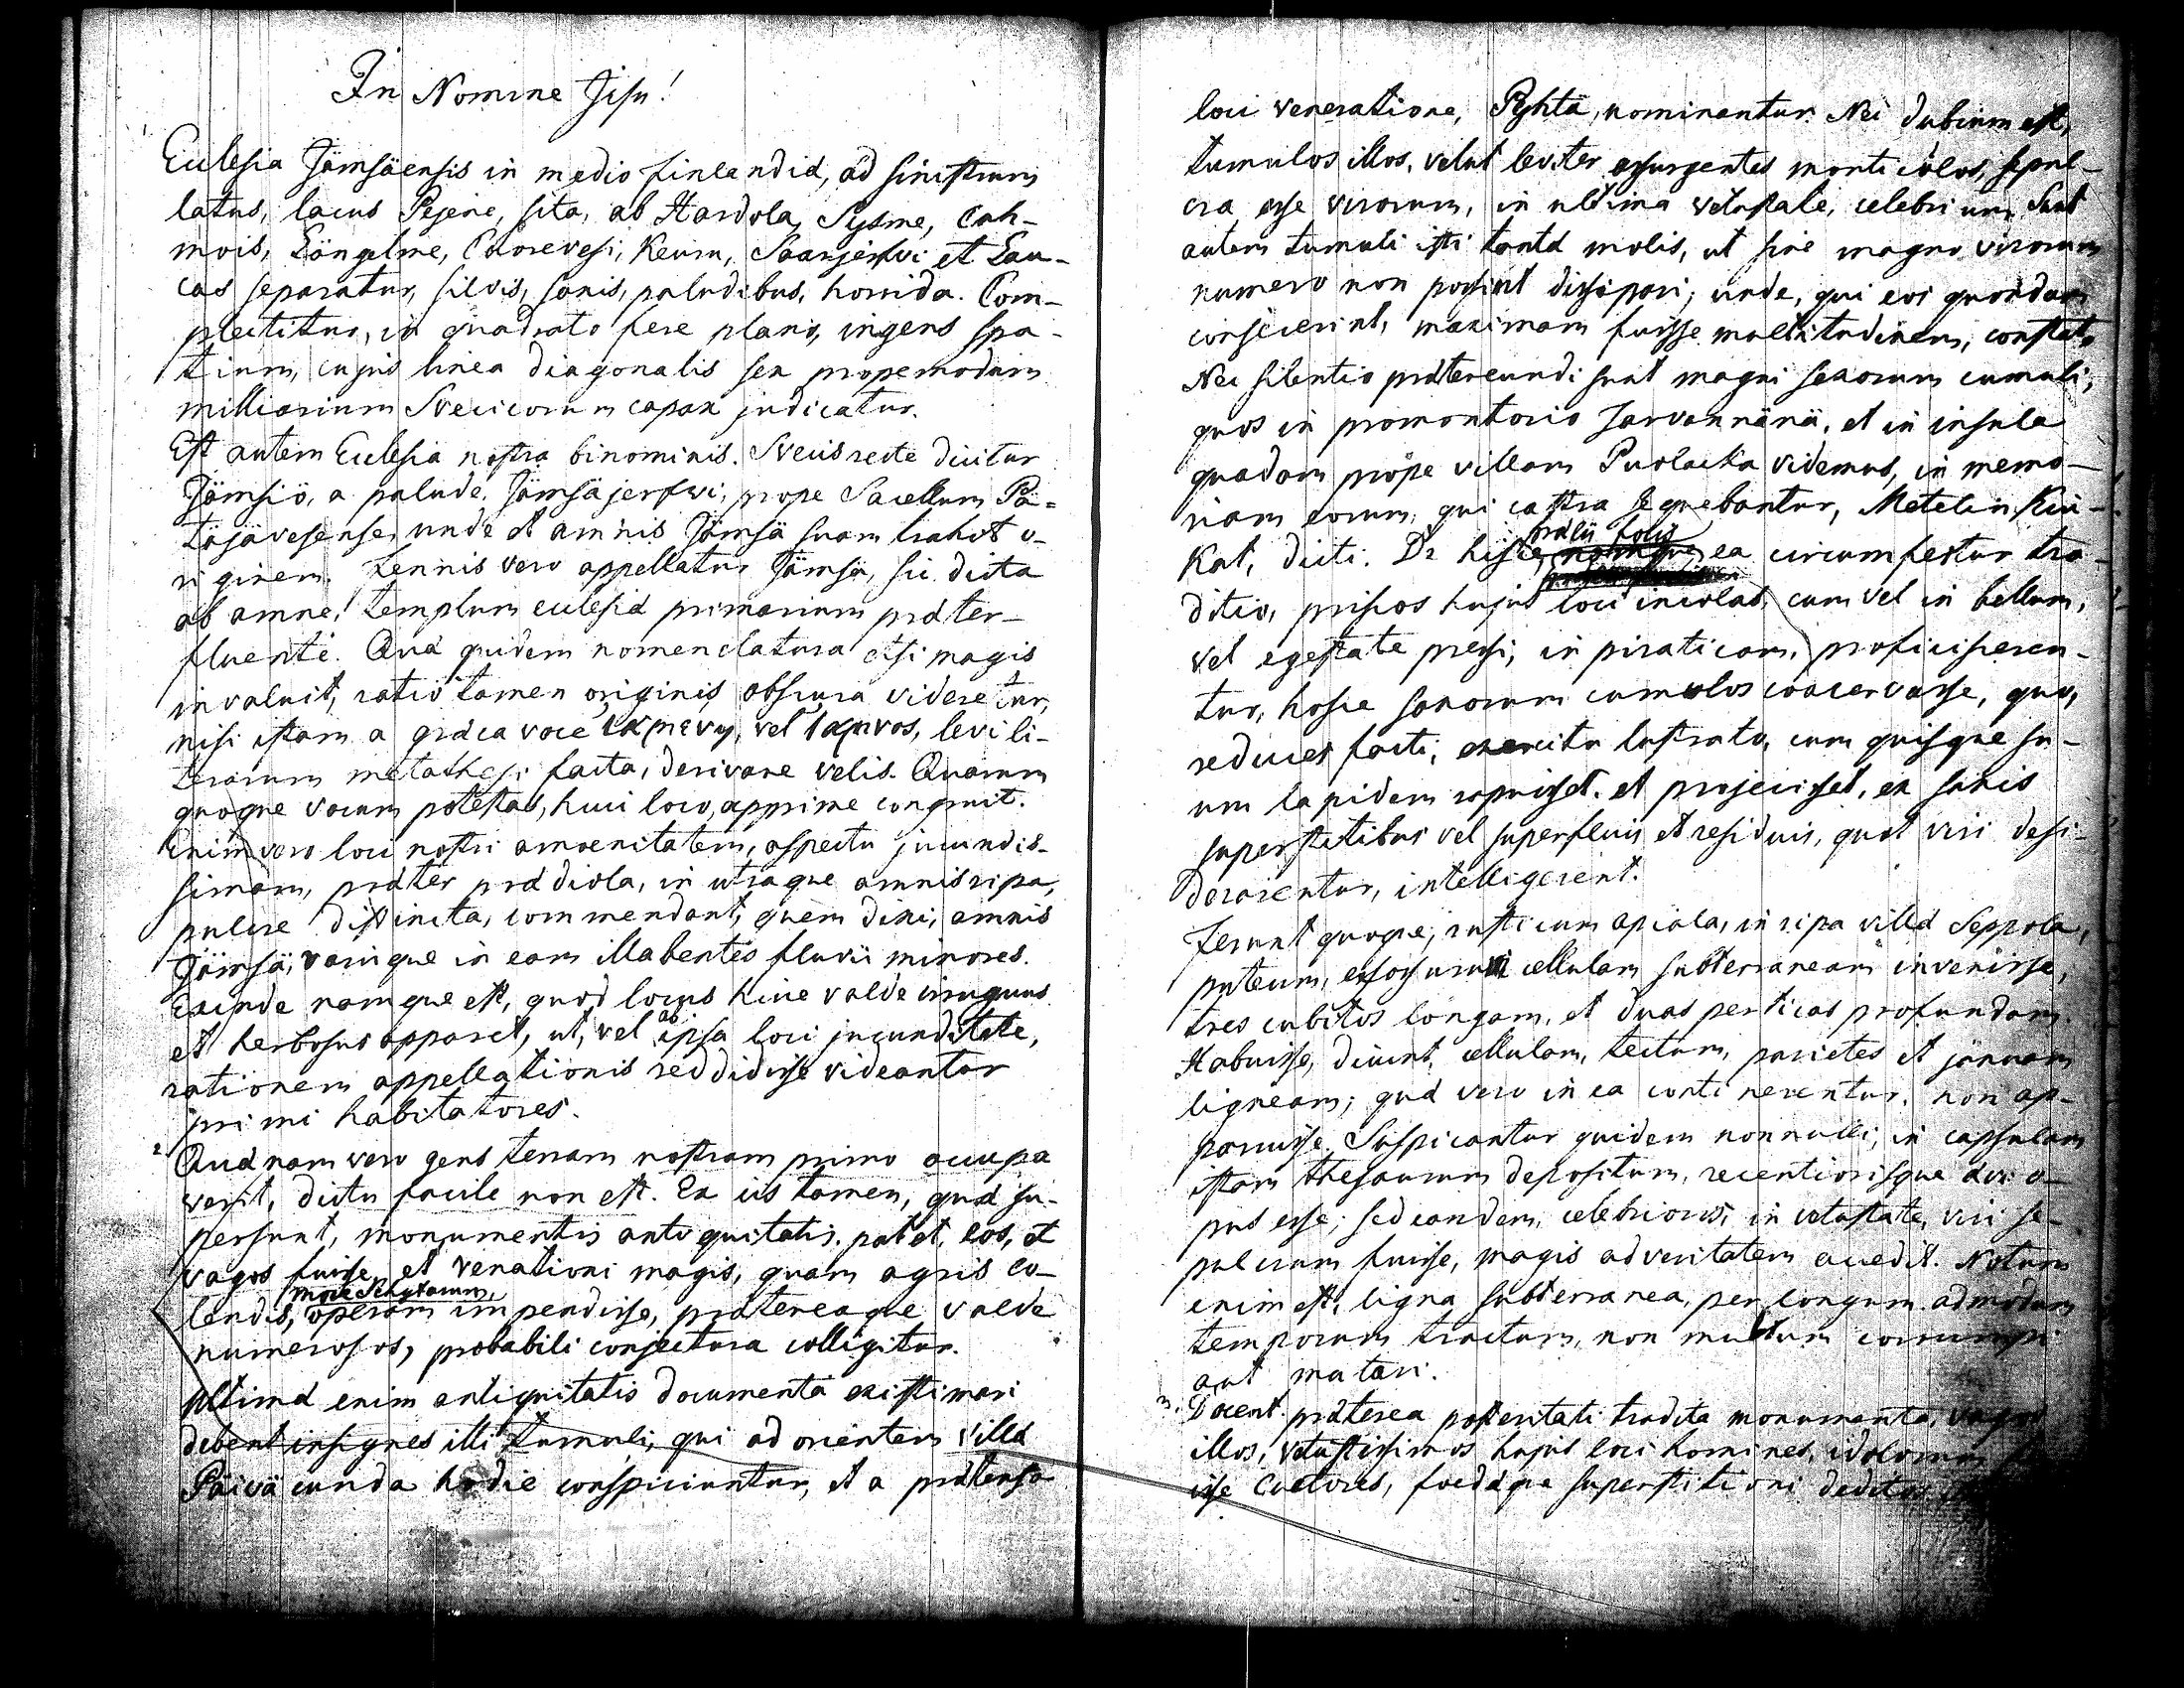 In Nomine Jesu!
Ecclesia Jämsäensis in medio Finlandiæ, ad sinistrum
latus, lacus Pejene, sita, ab Hardola, Sysme, Cuh-
mois, Längelme, Corevesi, Keuru, Saarjerfvi et Lau-
cas separatur, silvis, saxis, paludibus, horrida. Com-
plectitur, in quadrato fere plano, ingens spa-
tium, cujus linea diagonalis sex propemodum
milliarium Svecicorum capax judicatur.
Est autem Ecclesia nostra binominis. Svecis recte dicitur
Jämsiö, a palude, Jämsäjerfvi, prope Sacellum Pä-
täjävesense, unde et amnis Jämsä suam trahit o-
riginem. Fennis vero appellatur Jämsä, sic dicta
ab amne, templum ecclesiæ primarium præter-
fluente. Quæ quidem nomenclatura etsi magis
invaluit, ratio tamen originis obscura videretur,
nisi istam a græca voce vel levi li-
terarum metathesi facta, derivare velis. Quarum
quoque vocum potestas, huic loco, apprime congruit.
Enimvero loci nostri amoenitatem, aspectu jucundis-
simam, præter prædiola, in utraque amnis ripa,
pulcre distincta, commendant, quem dixi, amnis
Jämsä, varique in eam illabentes fluvii minores.
Exinde namque est, quod locus hicce valde irriguus
et herbosus apparet, ut, vel ab ipsa loci jucunditate,
rationem appellationis reddidisse videantur
primi habitatores.
2 Quænam vero gens terram nostram primo occupa
verit, dictu facile non est. Ex iis tamen, quæ su-
persunt, monumentis antiquitatis, patet, eos, et
vagos fuisse, et venationi magis, quam agris co-
more Schytarum,
lendis, operam impendisse, prætereaque valde
numerosos, probabili conjectura colligitur.
Ultimæ enim antiquitatis documenta existimari
debent insignes illi tumuli, qui ad orientem villæ
Päivä cunda hodie conspiciuntur, et a prætensa
loci veneratione, Pyhtä, nominantur. Nec dubium est,
tumulos illos, velut leviter assurgentes monticulos, sepul-
cra esse virorum, in ultima vetustate, celebrium. Sunt
autem tumuli isti tantæ molis, ut sine magno virorum
numero non possint dissipari; unde, qui eos quondam
conjecerint, maximam fuisse multitudinem, constat.
Nec silentio prætereundi sunt magni saxorum cumuli,
quos in promontorio Sarvannänä, et in insula
quadam prope villam Puolacka videmus, in memo-
riam eorum, qui castra sequebantur, Metelin Kiu-
kat, dicti. De hisce, ea circumfertur tra-
ditio, priscos hujus loci incolas, cum vel in bellum,
vel egestate pressi, in piraticam, proficisceren-
tur, hosce saxorum cumulos coacervasse, quo,
reduces facti, exercitu lustrato, cum quisque su-
um lapidem rapuisset et projecisset, ex saxis
superstitibus vel superfluis et residuis, quot viri desi-
derarentur, intelligerent.
Ferunt quoque, rusticum apicola, in ripa villæ Seppola,
puteum, effossurum cellulam subterraneam invenisse,
tres cubitos longam, et duas perticas profundam.
Habuisse, dicunt, cellulam, tectum, parietes et januam
ligneam; quæ vero in ea continerentur, non ap-
paruisse. Suspicantur quidem nonnulli, in capsulam
istam thesaurum depositum, recentiorisque ævi o-
pus esse; sed eandem, celebrioris, in vetustate, viri se-
pulcrum fuisse, magis ad veritatem accedit. Notum
enim est, ligna subterranea, per longum admodum
temporum tractum, non multum corrumpi
aut mutari.
3. Docent præterea posteritati tradita monumenta, vagos
illos, vetustissimos hujus loci homines, idolorum
isse cultores, foedæque superstitioni deditos